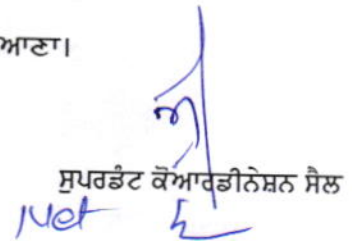 ਆਣਾ।
ਸੁਪਰਡੰਟ ਕੋਆਰਡੀਨੇਸ਼ਨ ਸੈਲ